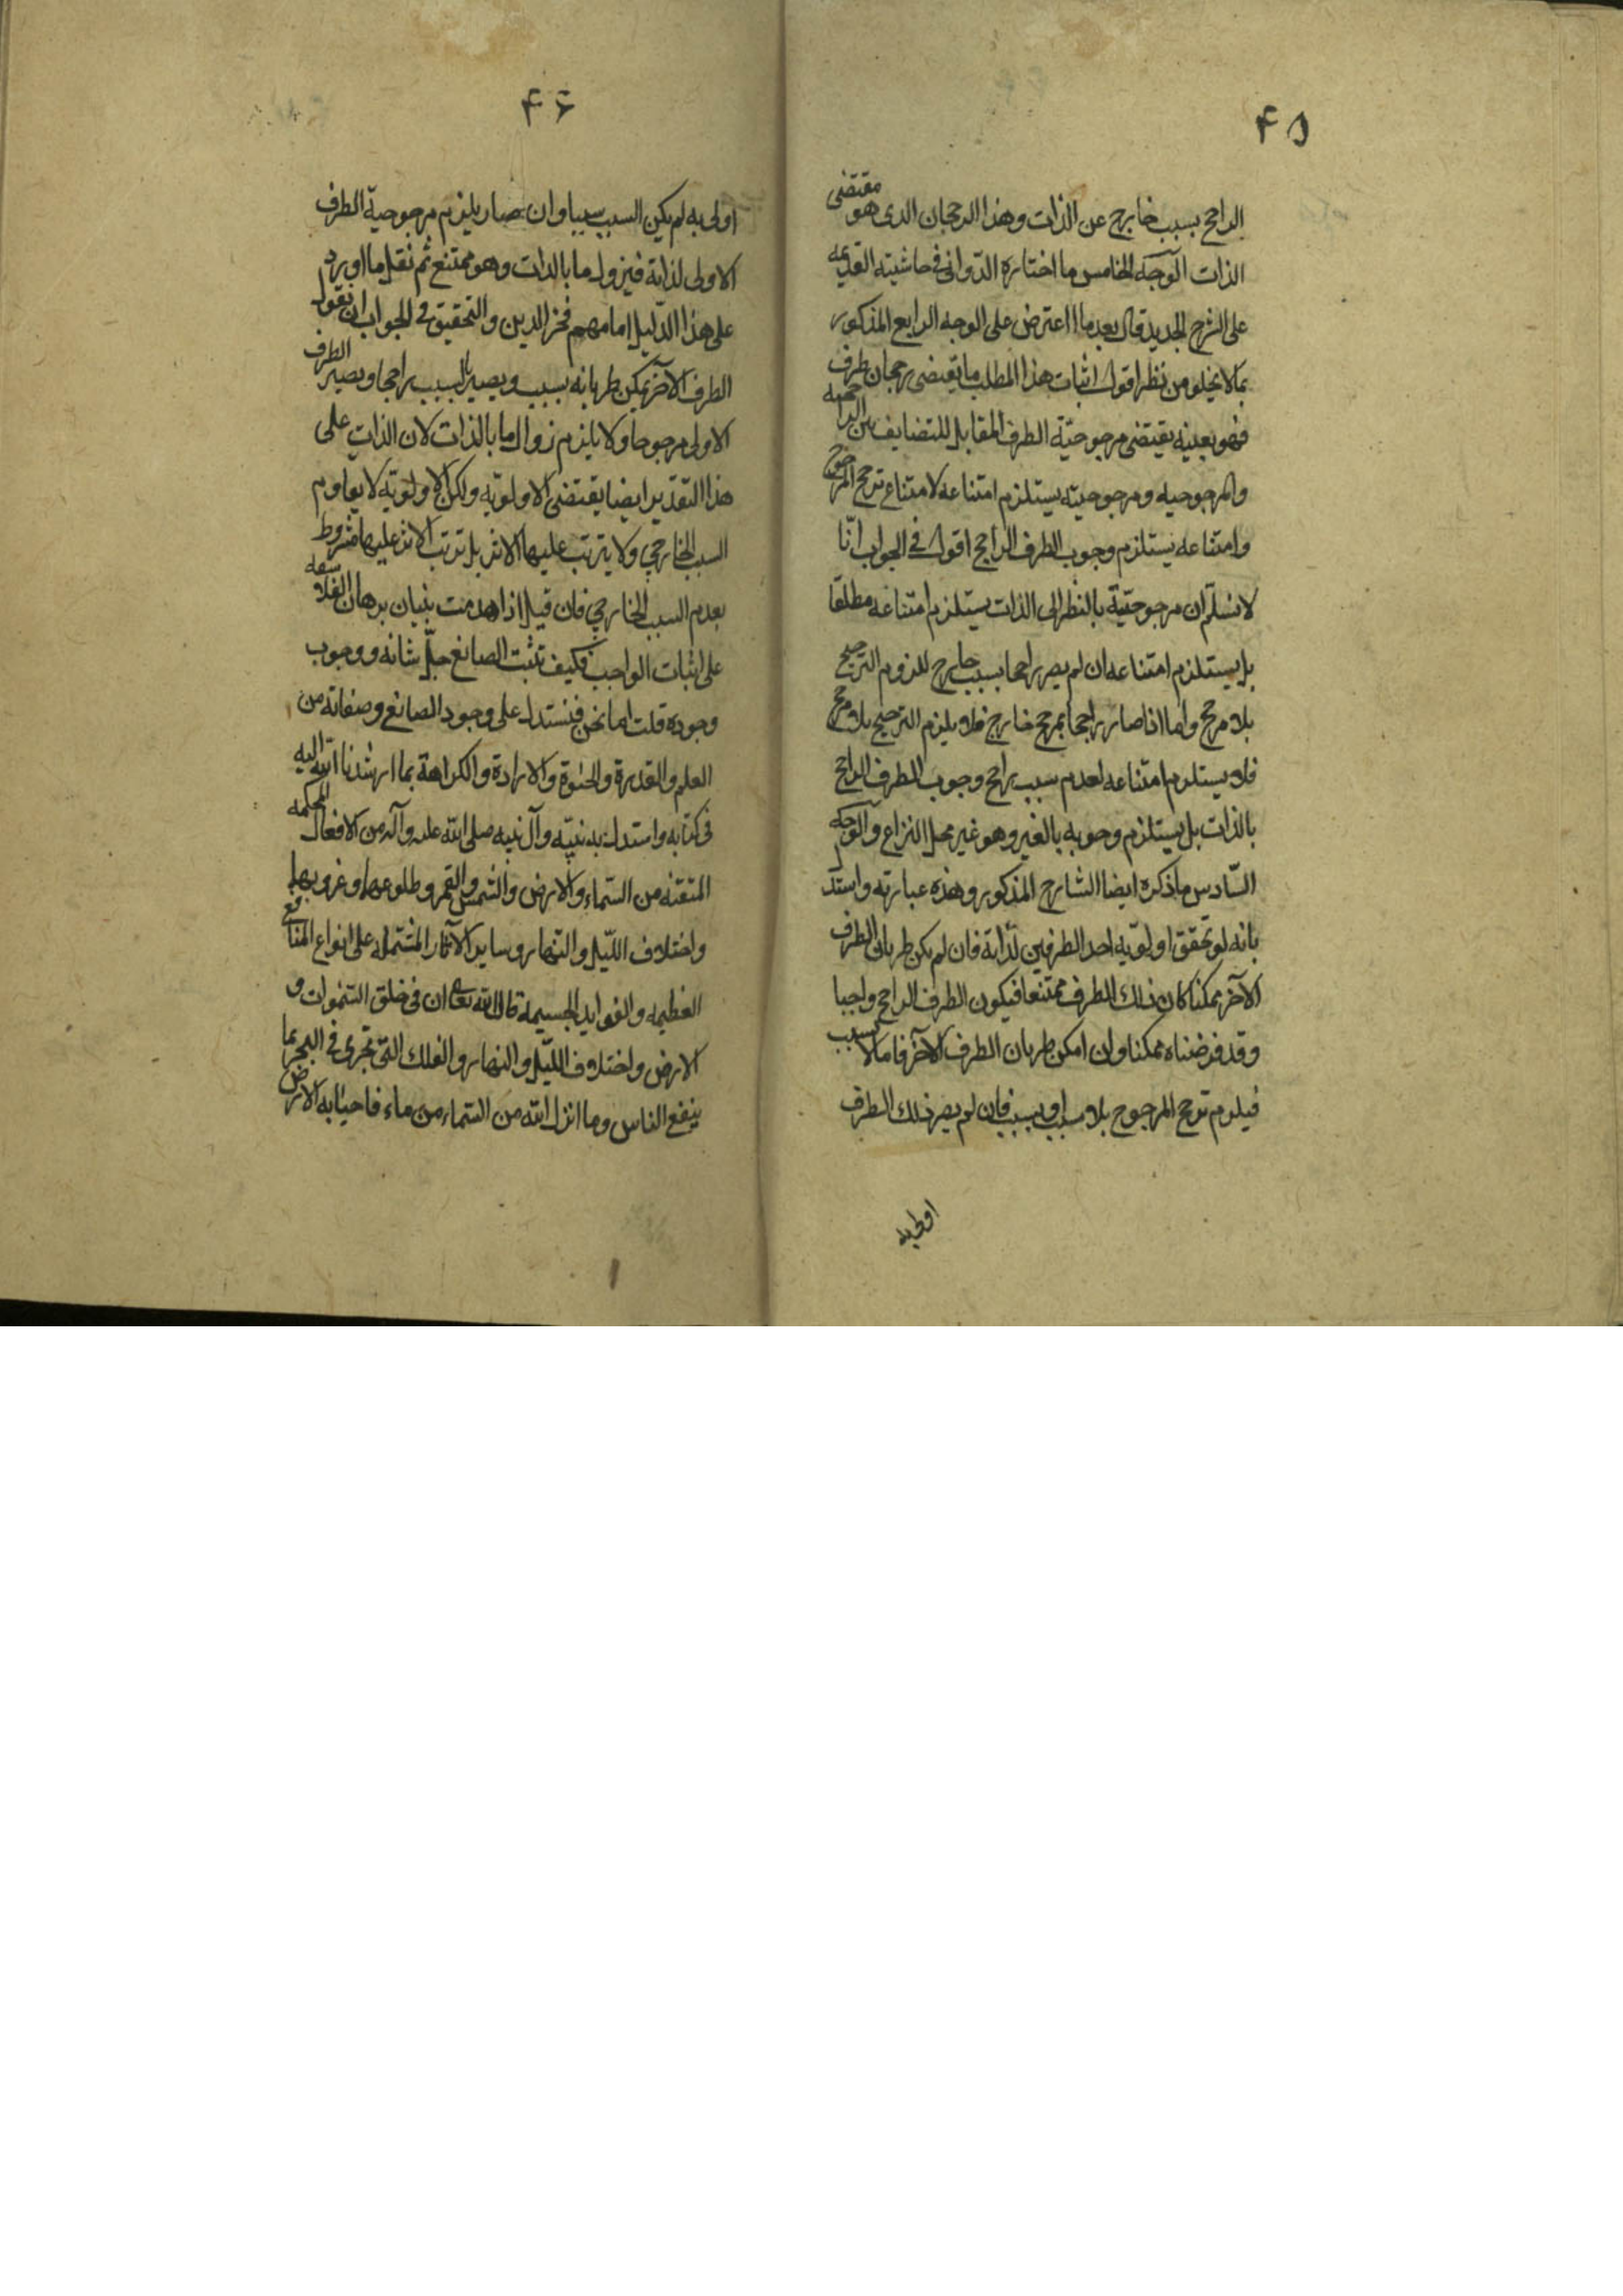 ۴۵
الراجح بسبب خارج عن الذات وهذا الرجحان الذى هو مقتضى
الذات الوجه الخامس ما اختاره الدوانى فى حاشيته القديمه
على الشرح الجديد قال بعد ما اعترض على الوجه الرابع المذكور
بما لا يخلو من نظر اقول اثبات هذا المطلب ما يقتضى رجحان طرف
فهو بعينه يقتضى مرجوحيّة الطرف المقابل للتضايف بين الراجحيه
والمرجوحيه ومرجوحيته يستلزم امتناعه لامتناع ترجح المرجوح
وامتناعه يستلزم وجوب الطرف الراجح اقول فى الجواب انّا
لا نسلّم ان مرجوحيّتة بالنظر الى الذات يستلزم امتناعه مطلقا
بل يستلزم امتناعه ان لم يصر راجحا بسبب خارج للزوم الترجيح
بلا مرجح واما اذا صار راجحا بمرجح خارج فلا يلزم الترجيح بلا مرجح
فلا يستلزم امتناعه لعدم سبب راجح وجوب الطرف الراجح
بالذات بل يستلزم وجوبه بالغير وهو غير محل النزاع والوجه
السّادس ما ذكره ايضا الشارح المذكور وهذه عبارته واستدل
بانه لو تحقق اولويّه احد الطرفين لذاتة فان لم يكن طريان الطرف
الآخر ممكنا كان ذلك الطرف ممتنعا فيكون الطرف الراجح واجبا
وقد فرضناه ممكنا وان امكن طريان الطرف الآخر فاما لا بسبب
فيلزم ترجح المرجوح بلا سبب او بسبب فان لم يصر ذلك الطرف
اولى به
۴۶
اولى به لم يكن السبب سببا وان صار يلزم مرجوحية الطرف
الاولى لذاتة فيزول ما بالذات وهو ممتنع ثم نقل ما اورد
على هذا الدليل امامهم فخر الدين والتحقيق فى الجواب ان نقول
الطرف الآخر يمكن طريانه بسبب ويصير بالسبب راجحا ويصير الطرف
الاولى مرجوحا ولا يلزم زوال ما بالذات لان الذات على
هذا التقدير ايضا يقتضى الاولويّه ولكن الاولويّه لا يعاوم
السبب الخارجي ولا يترتب عليها الاثر بل ترتب الاثر عليها مشروط
بعدم السبب الخارجي فان قيل اذا هدمت بنيان برهان الفلاسفه
على اثبات الواجب فكيف تثبت الصانع جلّ شانه ووجوب
وجوده قلت اما نحن فنستدل على وجود الصانع وصفاته من
العلم والقدرة والحيٰوة والارادة والكراهة بما ارشدنا الله اليه
فى كتابه واستدل به نبيّه وآل نبيه صلى الله عليه وآله من الافعال المحكمه
المتقنه من السّماء والارض والشمس والقمر وطلوعها وغروبها
واختلاف الليّل والنّهار وساير الآثار المشتمله على انواع المنافع
العظيمه والفوايد الجسيمة قال الله تعالى ان فى خلق السّمٰوات و
الارض واختلاف الليّل والنهار والفلك التى تجرى فى البحر بما
ينفع الناس وما انزل الله من السّماء من ماء فاحيٰا به الارض